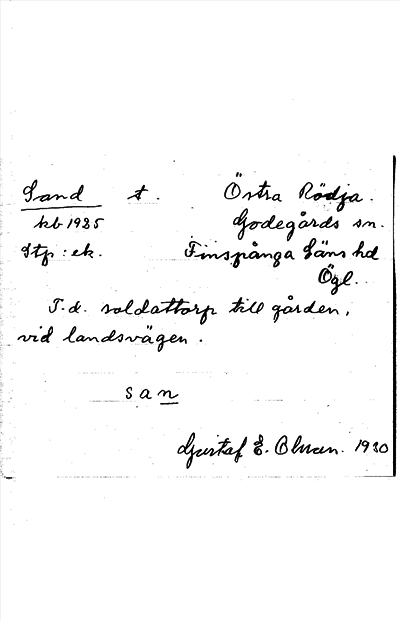 Sand t. Östra Rödja.
kb 1925 Godegårds sn.
Stp: ek. Finspånga läns hd
Ögl.
T.d. soldattorp till gården,
vid landsvägen.
san
Gustaf E. Blman. 1930